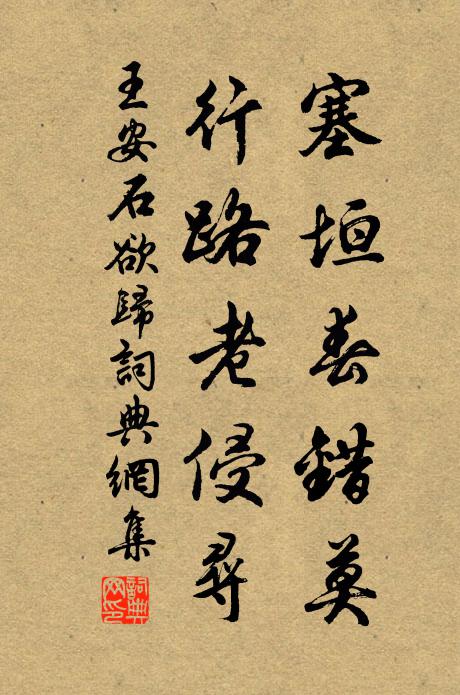 塞垣春錯莫
行路老侵尋
王安石欲歸詞典網集
詞典網印